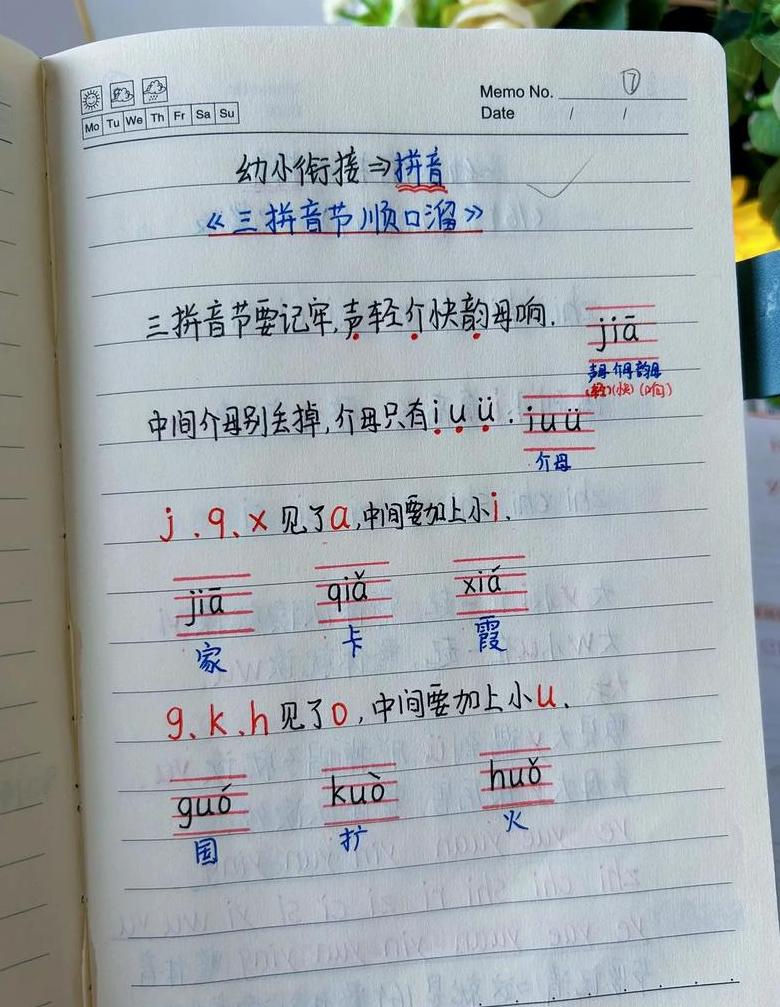 Memo No. 7
Mo Tu We Th Fr Sa Su
Date / /
幼小衔接⇒拼音
《三拼音节顺口溜》
三拼音节要记牢,声轻介快韵母响.
jiā
声母 介母 韵母
(轻)(快)(响)
中间介母别丢掉,介母只有i u ü.
i u ü
介母
j、q、x见了a,中间要加上小i、
jiā qiǎ xiá
家 卡 霞
g、k、h见了o,中间要加上小u、
guó kuò huǒ
国 扩 火